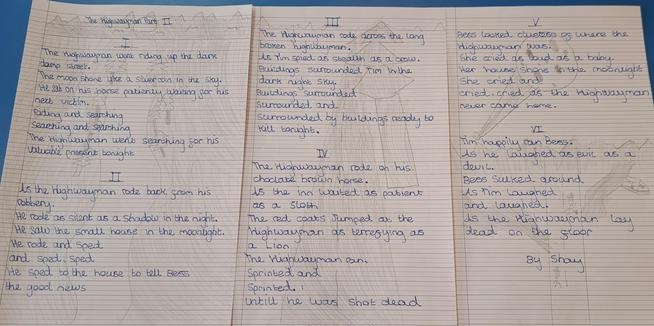 The Highwayman Part II
I
The Highwayman went riding up the dark
damp street.
The moon shone like a silver coin in the sky.
He sat on his horse patiently waiting for his
next victim.
Riding and searching
Searching and searching
The Highwayman went searching for his
valuable present tonight
II
As the Highwayman rode back from his
robbery.
He rode as silent as a shadow in the night.
He saw the small house in the moonlight.
He rode and sped
and sped, sped
He sped to the house to tell Bess
the good news
III
The Highwayman rode across the long
broken highwayman.
As Tim spied as stealth as a crow.
Buildings surrounded Tim in the
dark night sky.
Buildings surrounded
Surrounded and
Surrounded by buildings ready to
kill tonight.
IV
The Highwayman rode on his
choclate brown horse.
As the inn waited as patient
as a sloth
The red coats Jumped at the
Highwayman as terrefying as
a Lion.
The Highwayman ran.
Sprinted and
Sprinted.
Untill he was shot dead
V
Bess looked clueless of where the
Highwayman was.
She cried as loud as a baby.
Her house shone in the moonlight
She cried and
cried, cried as the Highwayman
never came home.
VI
Tim happily ran Bess.
As he laughed as evil as a
devil.
Bess sulked around
As Tim laughed
and laughed.
As the Highwayman lay
dead on the floor
By Shay